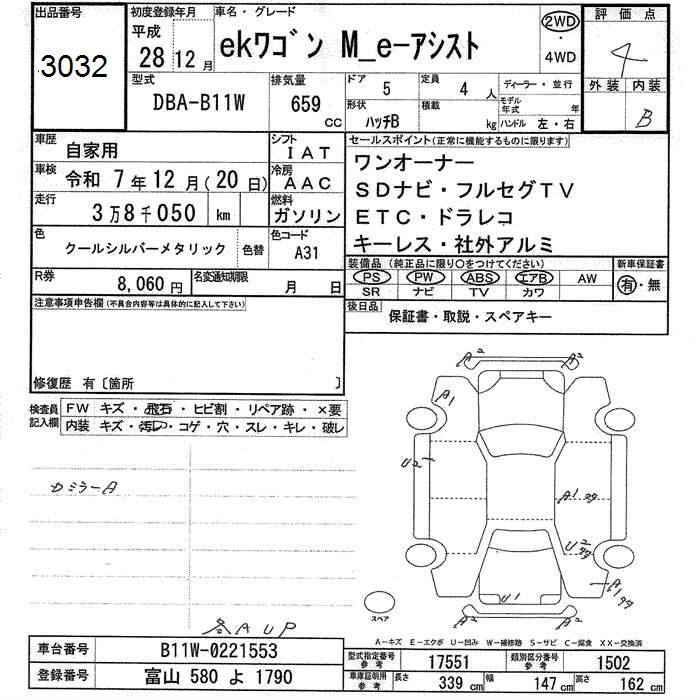 出品番号
3032
初度登録年月
平成
28 12 月
車名・グレード
ekワゴン M_e-アシスト
2WD
・
4WD
評価点
4
外装 内装
B
型式
DBA-B11W
排気量
659 cc
ドア 5
形状 ハッチB
定員 4 人
積載 kg
ディーラー・並行
モデル年式 年
ハンドル 左・右
車歴 自家用
シフト IAT
車検 令和 7年12月(20日)
冷房 AAC
走行 3万8千050 km
燃料 ガソリン
色 クールシルバーメタリック 色替
色コード A31
R券 8,060円
名変通知期限 月 日
セールスポイント(正常に機能するものに限ります)
ワンオーナー
SDナビ・フルセグTV
ETC・ドラレコ
キーレス・社外アルミ
装備品(純正品に限り○をつけてください)
PS PW ABS エアB AW
SR ナビ TV カワ
新車保証書
有・無
後日品 保証書・取説・スペアキー
注意事項申告欄(不具合内容等は具体的に記入して下さい)
修復歴 有〔箇所 〕
検査員記入欄
FW キズ・飛石・ヒビ割・リペア跡・×要
内装 キズ・汚レ・コゲ・穴・スレ・キレ・破レ
ミラーA
AUP
A2 A2
A1
U2
A1
U2
U1
A1
スペア
A-キズ E-エクボ U-凹み W-補修跡 S-サビ C-腐食 XX-交換済
車台番号 B11W-0221553
登録番号 富山 580 よ 1790
型式指定番号 参考 17551
類別区分番号 参考 1502
車庫証明用 参考 長さ 339 cm 幅 147 cm 高さ 162 cm